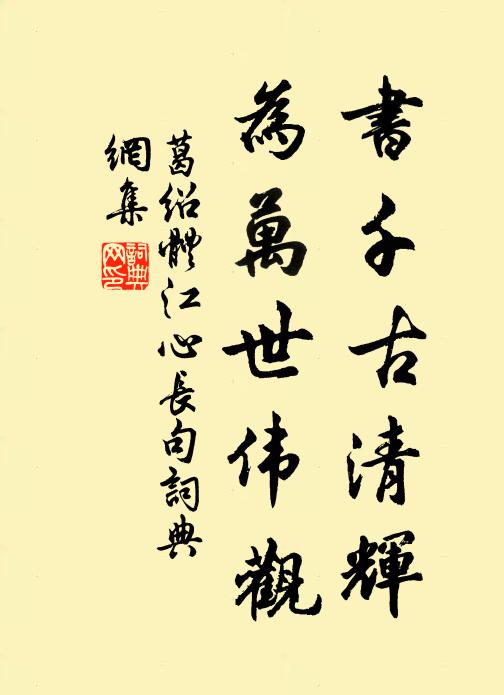 書千古清輝
為萬世伟觀
葛绍體江心長句詞典
網集
詞典
网印